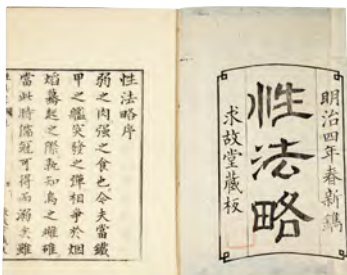 明治四年春新鐫
性法略
求故堂藏板
性法略序
弱之肉强之食也今夫當鐵
甲之艦突發之彈相爭於烟
焰驀起之際孰知烏之雌雄
當此時儒冠可得而溺矣雖